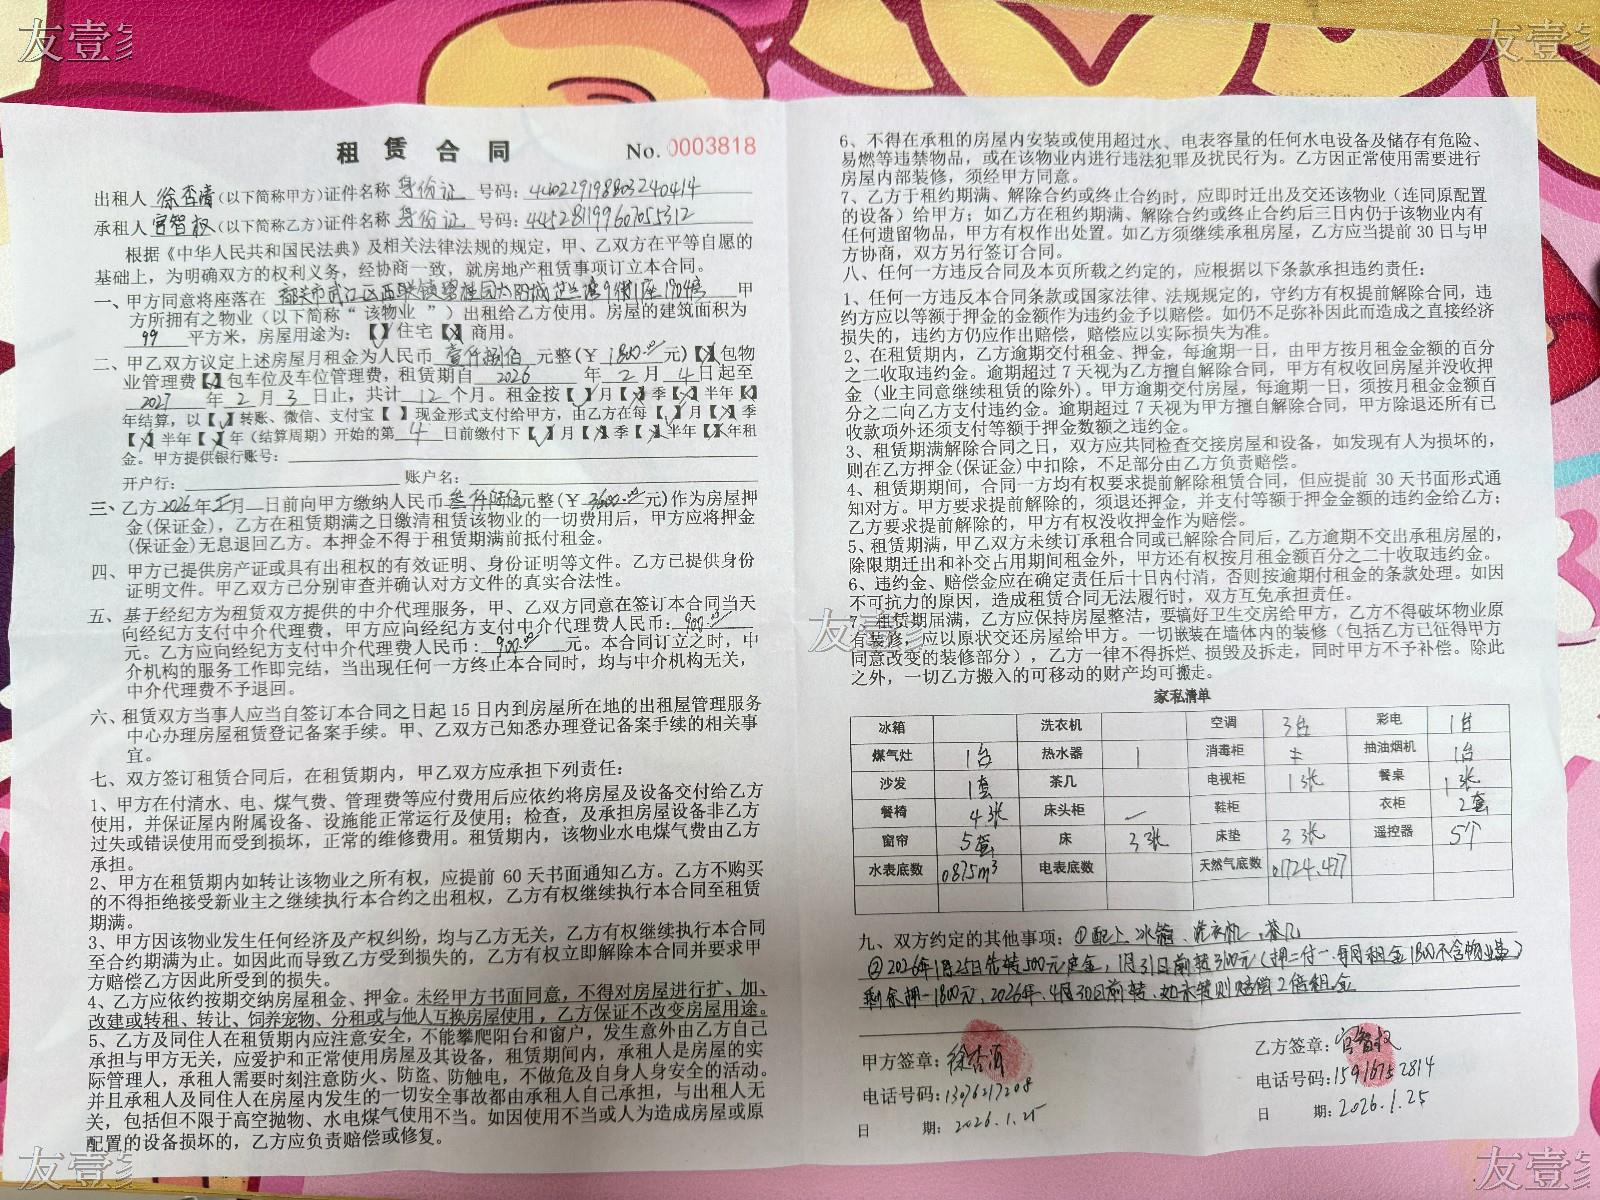 友壹家
友壹家
租赁合同 No. 0003818
出租人 徐杏清 (以下简称甲方)证件名称 身份证 号码: 440229198803240414
承租人 官智权 (以下简称乙方)证件名称 身份证 号码: 445281199607055312
根据《中华人民共和国民法典》及相关法律法规的规定，甲、乙双方在平等自愿的
基础上，为明确双方的权利义务，经协商一致，就房地产租赁事项订立本合同。
一、甲方同意将座落在 韶关市武江区西联镇碧桂园太阳城芷兰湾9街1座1904房 甲
方所拥有之物业（以下简称“该物业”）出租给乙方使用。房屋的建筑面积为
99 平方米，房屋用途为：【】住宅【】商用。
二、甲乙双方议定上述房屋月租金为人民币 壹仟捌佰 元整(￥ 1800.00 元)【】包物
业管理费【】包车位及车位管理费，租赁期自 2026 年 2 月 4 日起至
2027 年 2 月 3 日止，共计 12 个月。租金按【】月【】季【】半年【】
年结算，以【】转账、微信、支付宝【】现金形式支付给甲方，由乙方在每【】月【】季
【】半年【】年(结算周期)开始的第 4 日前缴付下【】月【】季【】半年【】年租
金。甲方提供银行账号：
开户行： 账户名：
三、乙方 2026 年 月 日前向甲方缴纳人民币 叁仟陆佰 元整(￥ 3600.00 元)作为房屋押
金(保证金)，乙方在租赁期满之日缴清租赁该物业的一切费用后，甲方应将押金
(保证金)无息退回乙方。本押金不得于租赁期满前抵付租金。
四、甲方已提供房产证或具有出租权的有效证明、身份证明等文件。乙方已提供身份
证明文件。甲乙双方已分别审查并确认对方文件的真实合法性。
五、基于经纪方为租赁双方提供的中介代理服务，甲、乙双方同意在签订本合同当天
向经纪方支付中介代理费，甲方应向经纪方支付中介代理费人民币： 900.00
元。乙方应向经纪方支付中介代理费人民币： 900.00 元。本合同订立之时，中
介机构的服务工作即完结，当出现任何一方终止本合同时，均与中介机构无关，
中介代理费不予退回。
六、租赁双方当事人应当自签订本合同之日起15日内到房屋所在地的出租屋管理服务
中心办理房屋租赁登记备案手续。甲、乙双方已知悉办理登记备案手续的相关事
宜。
七、双方签订租赁合同后，在租赁期内，甲乙双方应承担下列责任：
1、甲方在付清水、电、煤气费、管理费等应付费用后应依约将房屋及设备交付给乙方
使用，并保证屋内附属设备、设施能正常运行及使用；检查，及承担房屋设备非乙方
过失或错误使用而受到损坏，正常的维修费用。租赁期内，该物业水电煤气费由乙方
承担。
2、甲方在租赁期内如转让该物业之所有权，应提前60天书面通知乙方。乙方不购买
的不得拒绝接受新业主之继续执行本合约之出租权，乙方有权继续执行本合同至租赁
期满。
3、甲方因该物业发生任何经济及产权纠纷，均与乙方无关，乙方有权继续执行本合同
至合约期满为止。如因此而导致乙方受到损失的，乙方有权立即解除本合同并要求甲
方赔偿乙方因此所受到的损失。
4、乙方应依约按期交纳房屋租金、押金。未经甲方书面同意，不得对房屋进行扩、加、
改建或转租、转让、饲养宠物、分租或与他人互换房屋使用，乙方保证不改变房屋用途。
5、乙方及同住人在租赁期内应注意安全，不能攀爬阳台和窗户，发生意外由乙方自己
承担与甲方无关，应爱护和正常使用房屋及其设备，租赁期间内，承租人是房屋的实
际管理人，承租人需要时刻注意防火、防盗、防触电，不做危及自身人身安全的活动。
并且承租人及同住人在房屋内发生的一切安全事故都由承租人自己承担，与出租人无
关，包括但不限于高空抛物、水电煤气使用不当。如因使用不当或人为造成房屋或原
配置的设备损坏的，乙方应负责赔偿或修复。
6、不得在承租的房屋内安装或使用超过水、电表容量的任何水电设备及储存有危险、
易燃等违禁物品，或在该物业内进行违法犯罪及扰民行为。乙方因正常使用需要进行
房屋内部装修，须经甲方同意。
7、乙方于租约期满、解除合约或终止合约时，应即时迁出及交还该物业（连同原配置
的设备）给甲方；如乙方在租约期满、解除合约或终止合约后三日内仍于该物业内有
任何遗留物品，甲方有权作出处置。如乙方须继续承租房屋，乙方应当提前30日与甲
方协商，双方另行签订合同。
八、任何一方违反合同及本页所载之约定的，应根据以下条款承担违约责任：
1、任何一方违反本合同条款或国家法律、法规规定的，守约方有权提前解除合同，违
约方应以等额于押金的金额作为违约金予以赔偿。如仍不足弥补因此而造成之直接经济
损失的，违约方仍应作出赔偿，赔偿应以实际损失为准。
2、在租赁期内，乙方逾期交付租金、押金，每逾期一日，由甲方按月租金金额的百分
之二收取违约金。逾期超过7天视为乙方擅自解除合同，甲方有权收回房屋并没收押
金（业主同意继续租赁的除外）。甲方逾期交付房屋，每逾期一日，须按月租金金额百
分之二向乙方支付违约金。逾期超过7天视为甲方擅自解除合同，甲方除退还所有已
收款项外还须支付等额于押金数额之违约金。
3、租赁期满解除合同之日，双方应共同检查交接房屋和设备，如发现有人为损坏的，
则在乙方押金(保证金)中扣除，不足部分由乙方负责赔偿。
4、租赁期期间，合同一方均有权要求提前解除租赁合同，但应提前30天书面形式通
知对方。甲方要求提前解除的，须退还押金，并支付等额于押金金额的违约金给乙方；
乙方要求提前解除的，甲方有权没收押金作为赔偿。
5、租赁期满，甲乙双方未续订承租合同或已解除合同后，乙方逾期不交出承租房屋的，
除限期迁出和补交占用期间租金外，甲方还有权按月租金额百分之二十收取违约金。
6、违约金、赔偿金应在确定责任后十日内付清，否则按逾期付租金的条款处理。如因
不可抗力的原因，造成租赁合同无法履行时，双方互免承担责任。
7、租赁期届满，乙方应保持房屋整洁，要搞好卫生交房给甲方，乙方不得破坏物业原
有装修，应以原状交还房屋给甲方。一切嵌装在墙体内的装修（包括乙方已征得甲方
同意改变的装修部分），乙方一律不得拆烂、损毁及拆走，同时甲方不予补偿。除此
之外，一切乙方搬入的可移动的财产均可搬走。
友壹家
家私清单
冰箱 洗衣机 空调 3台 彩电 1台
煤气灶 1台 热水器 1 消毒柜 抽油烟机 1台
沙发 1套 茶几 电视柜 1张 餐桌 1张
餐椅 4张 床头柜 一 鞋柜 衣柜 2套
窗帘 5套 床 3张 床垫 3张 遥控器 5个
水表底数 0875m³ 电表底数 天然气底数 01724.477
九、双方约定的其他事项：①配上冰箱、洗衣机、茶几
②2026年1月25日先转500元定金，1月31日前转3100元（押二付一.每月租金1800不含物业费）
剩余押一1800元，2026年.4月30日前转.如未转则赔偿2倍租金
甲方签章： 徐杏清
电话号码： 13076217208
日 期： 2026.1.25
乙方签章： 官智权
电话号码： 15916752814
日 期： 2026.1.25
友壹家
友壹家